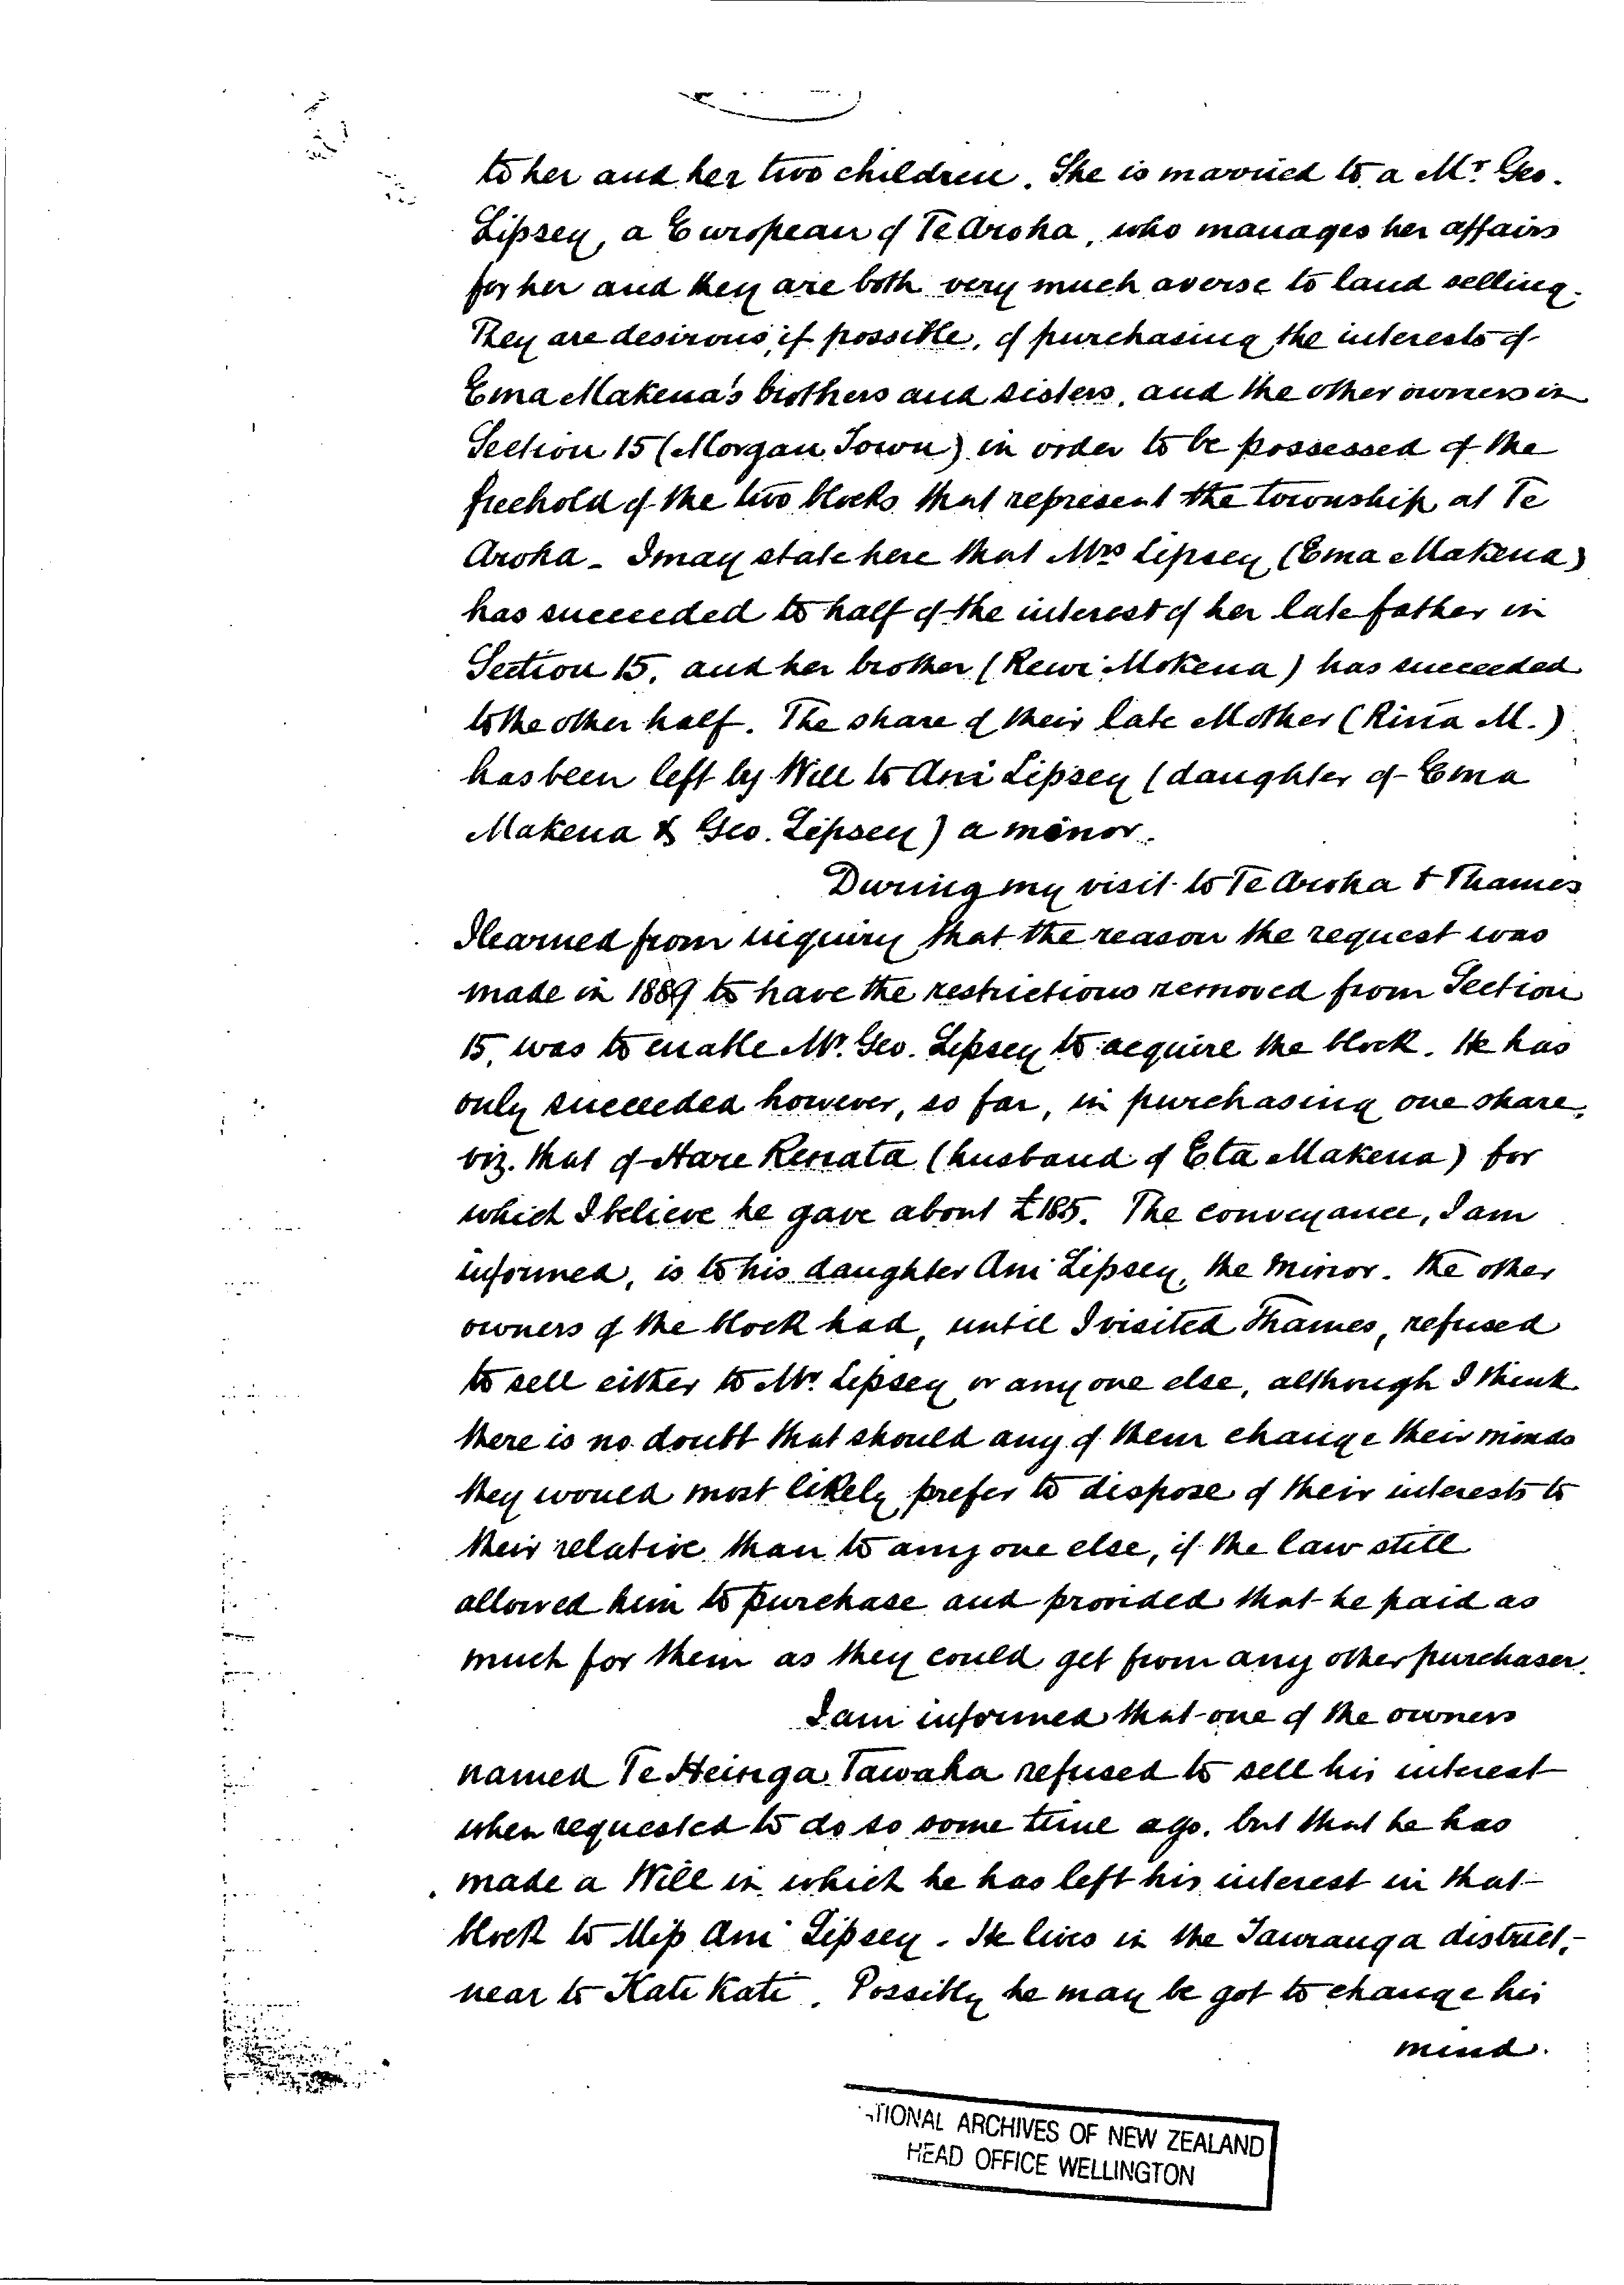 to her and her two children. She is married to a Mr Geo.
Lipsey, a European of Te Aroha, who manages her affairs
for her and they are both very much averse to land selling.
They are desirous, if possible, of purchasing the interests of
Ema Makena's brothers and sisters, and the other owners in
Section 15 (Morgan Town) in order to be possessed of the
freehold of the two blocks that represent the township at Te
Aroha - I may state here that Mrs Lipsey (Ema Makena)
has succeeded to half of the interest of her late father in
Section 15, and her brother (Rewi Mokena) has succeeded
to the other half. The share of their late Mother (Rina M.)
has been left by Will to Ani Lipsey (daughter of Ema
Makena & Geo. Lipsey) a minor.
During my visit to Te Aroha & Thames
I learned from inquiry that the reason the request was
made in 1889 to have the restrictions removed from Section
15, was to enable Mr. Geo. Lipsey to acquire the block. He has
only succeeded however, so far, in purchasing one share,
viz. that of Hare Renata (husband of Eta Makena) for
which I believe he gave about £185. The conveyance, I am
informed, is to his daughter Ani Lipsey, the minor. The other
owners of the block had, until I visited Thames, refused
to sell either to Mr. Lipsey or any one else, although I think
there is no doubt that should any of them change their minds
they would most likely prefer to dispose of their interests to
their relative than to any one else, if the law still
allowed him to purchase and provided that he paid as
much for them as they could get from any other purchaser.
I am informed that one of the owners
named Te Heinga Tawaha refused to sell his interest
when requested to do so some time ago, but that he has
made a Will in which he has left his interest in that
block to Miss Ani Lipsey. He lives in the Tauranga district,-
near to Kati Kati. Possibly he may be got to change his
mind.
TIONAL ARCHIVES OF NEW ZEALAND
HEAD OFFICE WELLINGTON